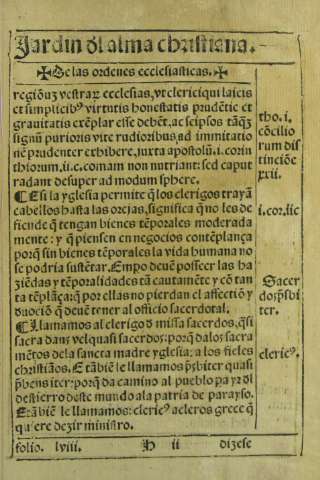 Jardin dl alma christiana.
✠De las ordenes ecclesiasticas.✠
regionũ vestrarũ ecclesias, vt clerici qui laicis
et simplicibꝰ virtutis honestatis prudẽtie et
grauitatis exẽplar esse debẽt, ac seipsos tãq̃
signũ purioris vite rudioribus, ad immitatio
nẽ prudenter exhibere, juxta apostolũ .i. corin
thiorum .ii. c. comam non nutriant: sed caput
radant desuper ad modum sphere.
¶E si la yglesia permite q̃ los clerigos trayã
cabellos hasta las orejas, significa q̃ no les de
fiende q̃ tengan bienes tẽporales moderada
mente: y q̃ piensen en negocios contẽplança
porq̃ sin bienes tẽporales la vida humana no
se podria sustẽtar. Empo deuẽ posseer las ha
ziẽdas y tẽporalidades tã cautamẽte y cõ tan
ta tẽplãça: q̃ por ellas no pierdan el affectiõ y
duociõ q̃ deuẽ tener al officio sacerdotal.
¶Llamamos al clerigo d missa sacerdos, q̃si
sacra dans vel quasi sacerdos: porq̃ da los sacra
mẽtos dela sancta madre yglesia: a los fieles
christiãos. E tãbiẽ le llamamos p̃sbiter quasi
p̃bens iter: porq̃ da camino al pueblo pa yz dl
destierro deste mundo ala patria de parayso.
E tãbiẽ le llamamos: clericꝰ a cleros grece q̃
quiere dezir ministro.
tho. i.
cõcilio
rum dis
tinciõe
xxii.
i. cor. iic
Sacer
dos p̃sbi
ter.
clericꝰ.
folio. lviii. H ii dizese